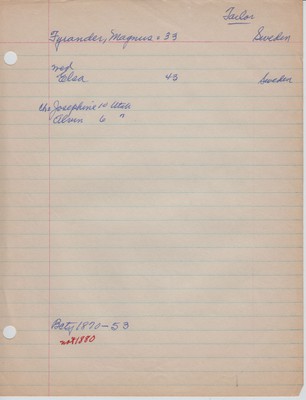 Tailor
Fyrander, Magnus 33 Sweden
md
Elsa 43 Sweden
ch. Josephine 14 Utah
Alvin 6 "
Bcty 1870-53
not 1880